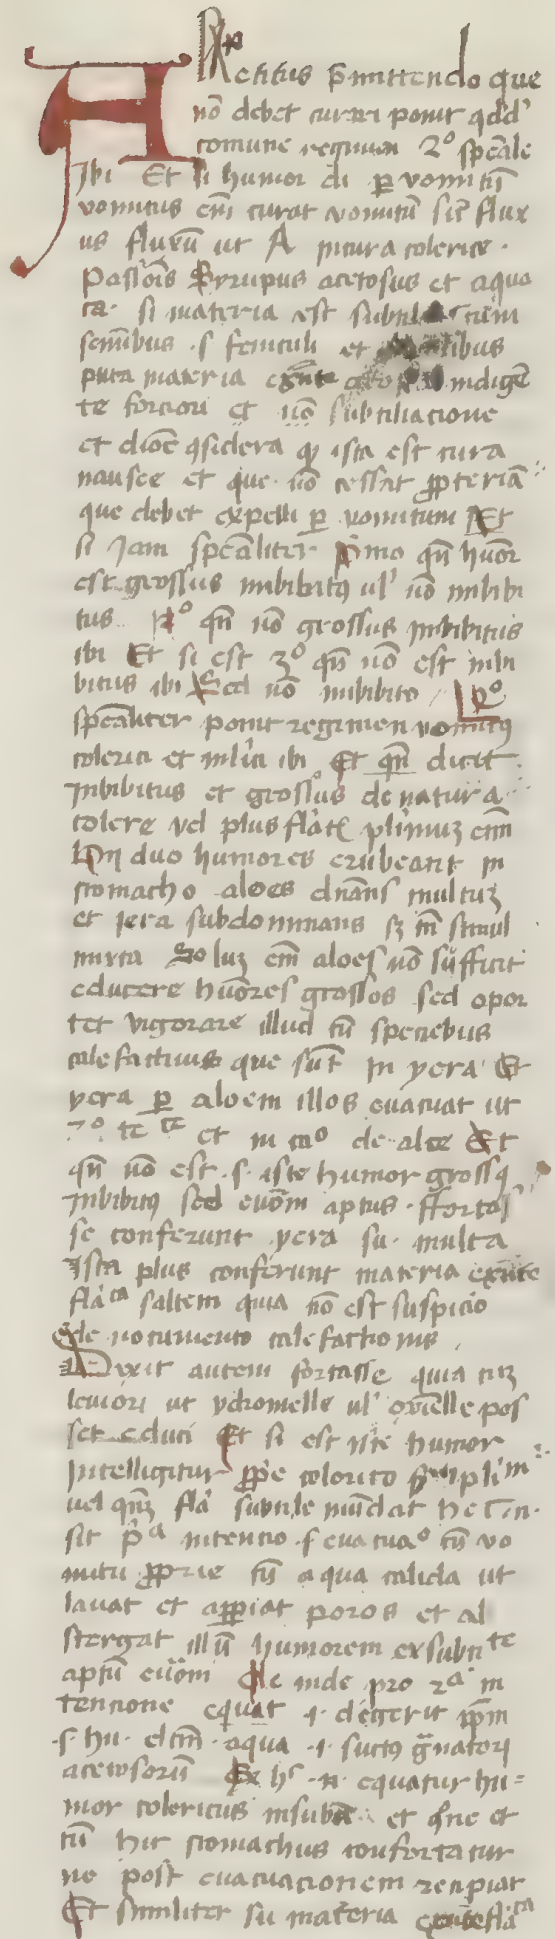 A
Rectitus p̄mittendo que
nō debet curari ponit qdd'
comune regimen 2º spēale
Ibi Et si humor di p̱ vomitū
vomitus em̄ curat vomitū sic̄ flux
us fluxū ut A in cura colerice ·
Passiois Syrupus acetosus et aqua
ca· si materia est subtilis cum
semībus · s feniculi et
puta materia exn̄te indigē
te forciori et nō subtiliacione
et dioē 9sidera q' ista est cura
nausee et que nō cessat pp̱ materiā
que debet expelli p̱ vomitum Et
si Iam spēaliter pͥmo qn̄ huōr
est grossus imbibitus ul' nō imbibi
tus 2º qn̄ nō grossus imbibitus
ibi Et si est 3º qn̄ nō est inbi
bitus ibi Sed nō imbibito 2º
spēaliter ponit regimen vomitus
colerici et mlīci ibi Et qn̄ dicit
Inbibitus et grossus de natura
colere vel plus flāt plīmuʒ em̄
hīj duo humores erubeant in
stomacho aloes dnāns multuʒ
et iera subdominans sʒ m̄ simul
mixta Soluʒ em̄ aloes nō sufficit
educere huōres grossos sed opor
tet vigorare illud cū speciebus
calefactiuis que sūt in yera Et
yera p̱ aloem illos euacuat ut
7º te et in caº de aloe Et
qn̄ nō est · s · iste humor grossus
Inbibitus sed euōm aptus · ffortas
se conferunt yera su · multa
Ista plus conferunt materia exn̄te
flāca saltem quia nō est suspicio
de nocumento calefactionis
Dixit autem fortasse quia cuʒ
leuiori ut ydromelle ul' oximelle pos
set educi Et si est iste humor
Intelligitur pp̱e colerico
uel qn̄ʒ flā subtile mūdat
sit pͣ intencio · s euacuaº cū vo
mitu pp̱rie cū aqua calida ut
lauat et app̱iat poros et ab
stergat illū humorem ex subtite
aptū euōmi De inde pro 2ͣ in
tencione equat · i · degerit ip̄m
· s · hu · aqua · i · succus g̈natori
acetosorū Ex hˢ · n · equatur hu=
mor colericus et
cū hic stomachus confortatur
ne post euacuacionem recipiat
Et similiter su materia exn̄te flāca